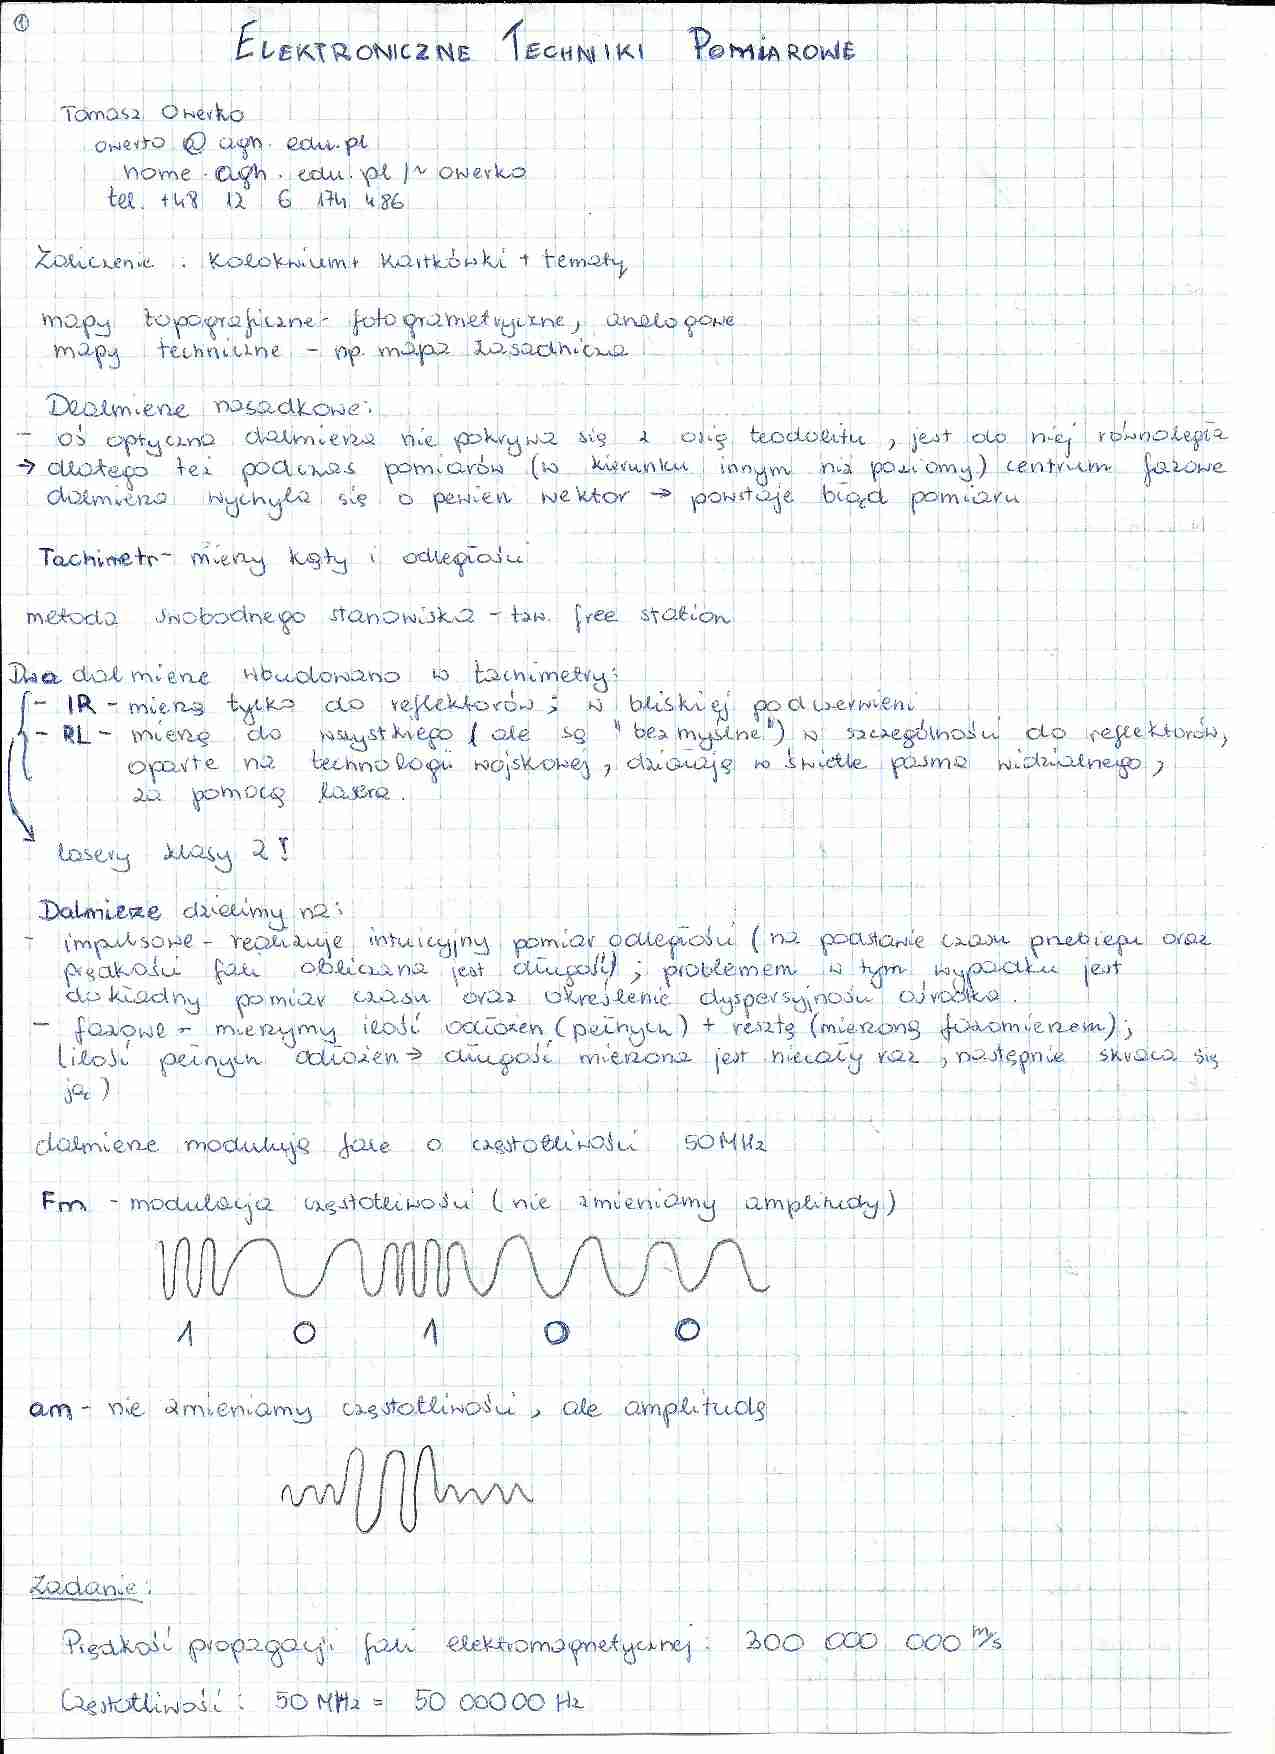 ①
ELEKTRONICZNE TECHNIKI POMIAROWE
Tomasz Owerko
owerko @ agh. edu.pl
home. agh. edu. pl /~ owerko
tel. +48 12 6 174 486
Zaliczenie : kolokwium + kartkówki + tematy
mapy topograficzne - fotogrametryczne, analogowe
mapy techniczne - np. mapa zasadnicza
Dalmierze nasadkowe:
- oś optyczna dalmierza nie pokrywa się z osią teodolitu, jest do niej równoległa
→ dlatego też podczas pomiarów (w kierunku innym niż poziomy) centrum fazowe
dalmierza wychyla się o pewien wektor → powstaje błąd pomiaru
Tachimetr - mierzy kąty i odległości
metoda swobodnego stanowiska - tzw. free station
Dwa dalmierze wbudowano w tachimetry:
- IR - mierzą tylko do reflektorów; w bliskiej podczerwieni
- RL - mierzą do wszystkiego (ale są "bezmyślne") w szczególności do reflektorów,
oparte na technologii wojskowej, działają w świetle pasma widzialnego,
za pomocą lasera.
lasery klasy 2!
Dalmierze dzielimy na:
- impulsowe - realizuje intuicyjny pomiar odległości (na podstawie czasu przebiegu oraz
prędkości fali obliczana jest długość); problemem w tym wypadku jest
dokładny pomiar czasu oraz określenie dyspersyjności ośrodka.
- fazowe - mierzymy ilość odłożeń (pełnych) + resztę (mierzoną fazomierzem);
(ilość pełnych odłożeń → długość mierzona jest niecały raz, następnie skraca się
ją)
dalmierze modulują fale o częstotliwości 50 MHz
Fm - modulacja częstotliwości (nie zmieniamy amplitudy)
1 0 1 0 0
am - nie zmieniamy częstotliwości, ale amplitudę
Zadanie:
Prędkość propagacji fali elektromagnetycznej: 300 000 000 m/s
Częstotliwość: 50 MHz = 50 00000 Hz